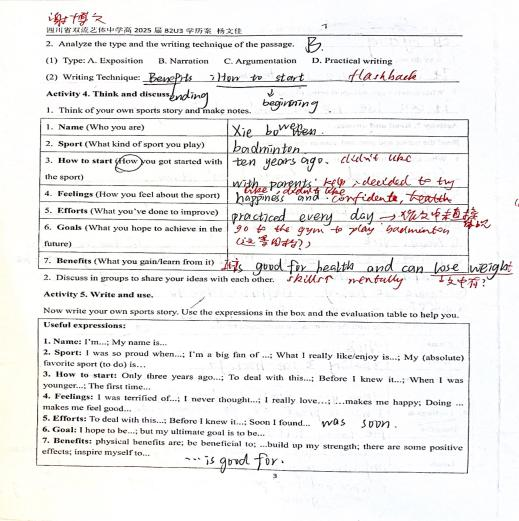 谢博文
四川省双流艺体中学高 2025 届 B2U3 学历案 杨文佳
2. Analyze the type and the writing technique of the passage. B.
(1) Type: A. Exposition B. Narration C. Argumentation D. Practical writing
(2) Writing Technique: Benefits → How to start flashback
Activity 4. Think and discuss. ending beginning
1. Think of your own sports story and make notes.
1. Name (Who you are) Xie bowen
2. Sport (What kind of sport you play) badminton
3. How to start (How you got started with the sport) ten years ago. didn't like
with parents' help, decided to try
4. Feelings (How you feel about the sport) like, didn't like
happiness and confidente, health
5. Efforts (What you've done to improve) practiced every day →
6. Goals (What you hope to achieve in the future) go to the gym to play badminton
7. Benefits (What you gain/learn from it) It is good for health and can lose weight
2. Discuss in groups to share your ideas with each other. skills↑ mentally
Activity 5. Write and use.
Now write your own sports story. Use the expressions in the box and the evaluation table to help you.
Useful expressions:
1. Name: I'm...; My name is...
2. Sport: I was so proud when...; I'm a big fan of ...; What I really like/enjoy is...; My (absolute)
favorite sport (to do) is...
3. How to start: Only three years ago...; To deal with this...; Before I knew it...; When I was
younger...; The first time...
4. Feelings: I was terrified of...; I never thought...; I really love...; ...makes me happy; Doing ...
makes me feel good...
5. Efforts: To deal with this...; Before I knew it...; Soon I found... was soon.
6. Goal: I hope to be...; but my ultimate goal is to be...
7. Benefits: physical benefits are; be beneficial to; ...build up my strength; there are some positive
effects; inspire myself to...
...is good for.
3